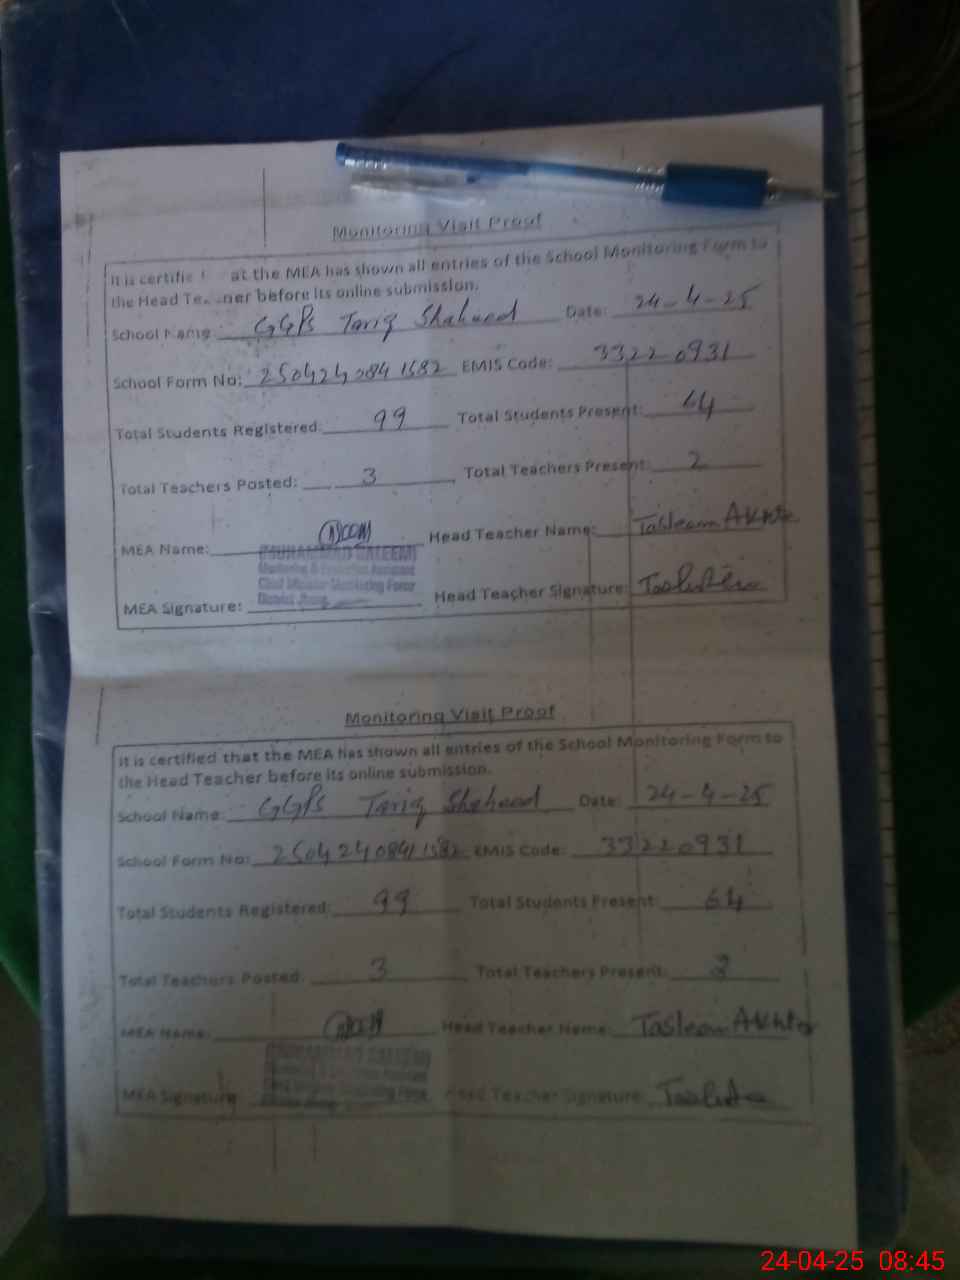 Monitoring Visit Proof
It is certifie at the MEA has shown all entries of the School Monitoring Form to
the Head Te ner before its online submission.
School Name: GGPS Tariq Shaheed Date: 24-4-25
School Form No: 250424 0841 1582 EMIS Code: 33220931
Total Students Registered: 99 Total Students Present: 64
Total Teachers Posted: 3 Total Teachers Present: 2
MEA Name: Head Teacher Name: Tasleem Akhter
MUHAMMAD SALEEM
Monitoring & Evaluation Assistant
Chief Minister Monitoring Force
District Jhang
MEA Signature: Head Teacher Signature:
Monitoring Visit Proof
It is certified that the MEA has shown all entries of the School Monitoring Form to
the Head Teacher before its online submission.
School Name: GGPS Tariq Shaheed Date: 24-4-25
School Form No: 250424 0841 1582 EMIS Code: 33220931
Total Students Registered: 99 Total Students Present: 64
Total Teachers Posted: 3 Total Teachers Present: 2
MEA Name: Head Teacher Name: Tasleem Akhter
MUHAMMAD SALEEM
MEA Signature: Head Teacher Signature:
24-04-25 08:45